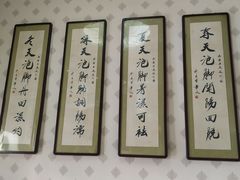 春天泡脚開陽固脱
夏天泡脚暑濕可祛
秋天泡脚肺潤腸濡
冬天泡脚丹田温灼